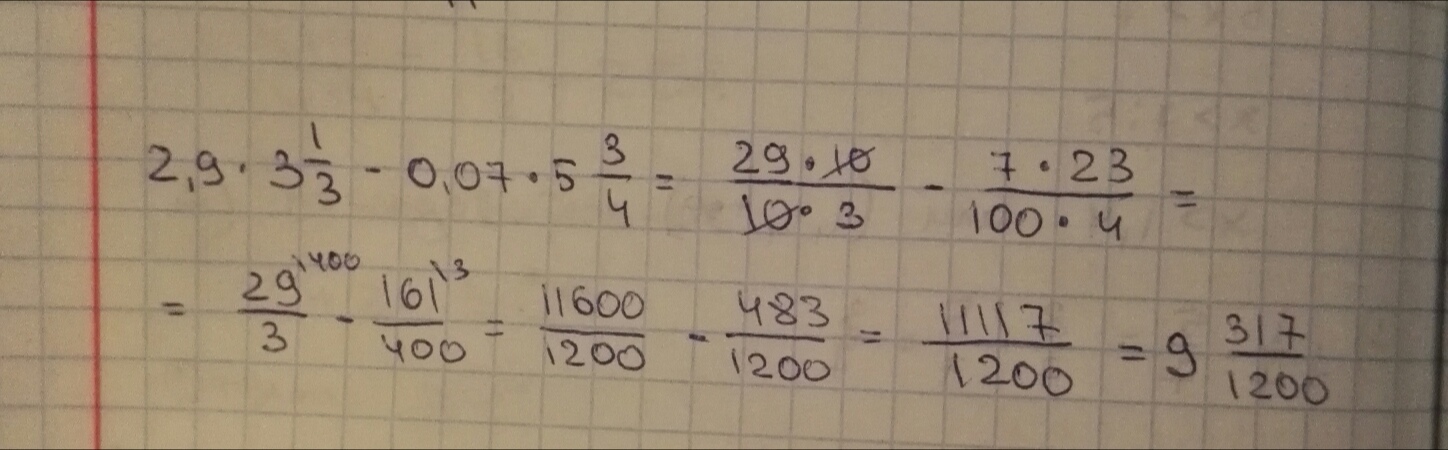 2,9 · 3 1/3 - 0,07 · 5 3/4 = 29 · 10 / 10 · 3 - 7 · 23 / 100 · 4 =
= 29\400 / 3 - 161\3 / 400 = 11600/1200 - 483/1200 = 11117/1200 = 9 317/1200